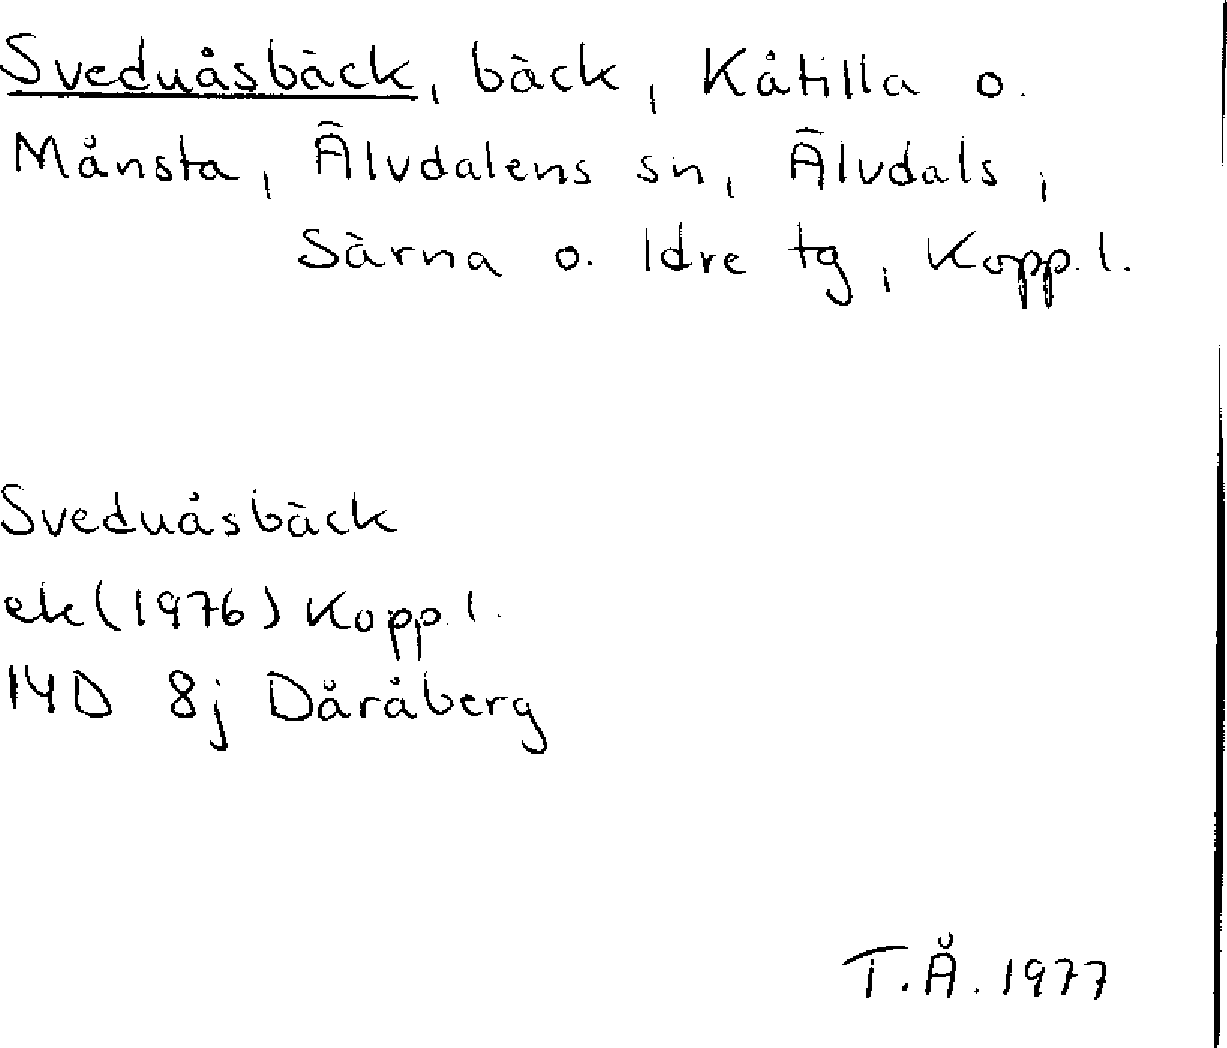 Sveduåsbäck, bäck, Kåtilla o.
Månsta, Älvdalens sn, Älvdals,
Särna o. Idre tg, Kopp. l.
Sveduåsbäck
ek (1976) Kopp. l.
14D 8j Dåråberg
T.Å. 1977